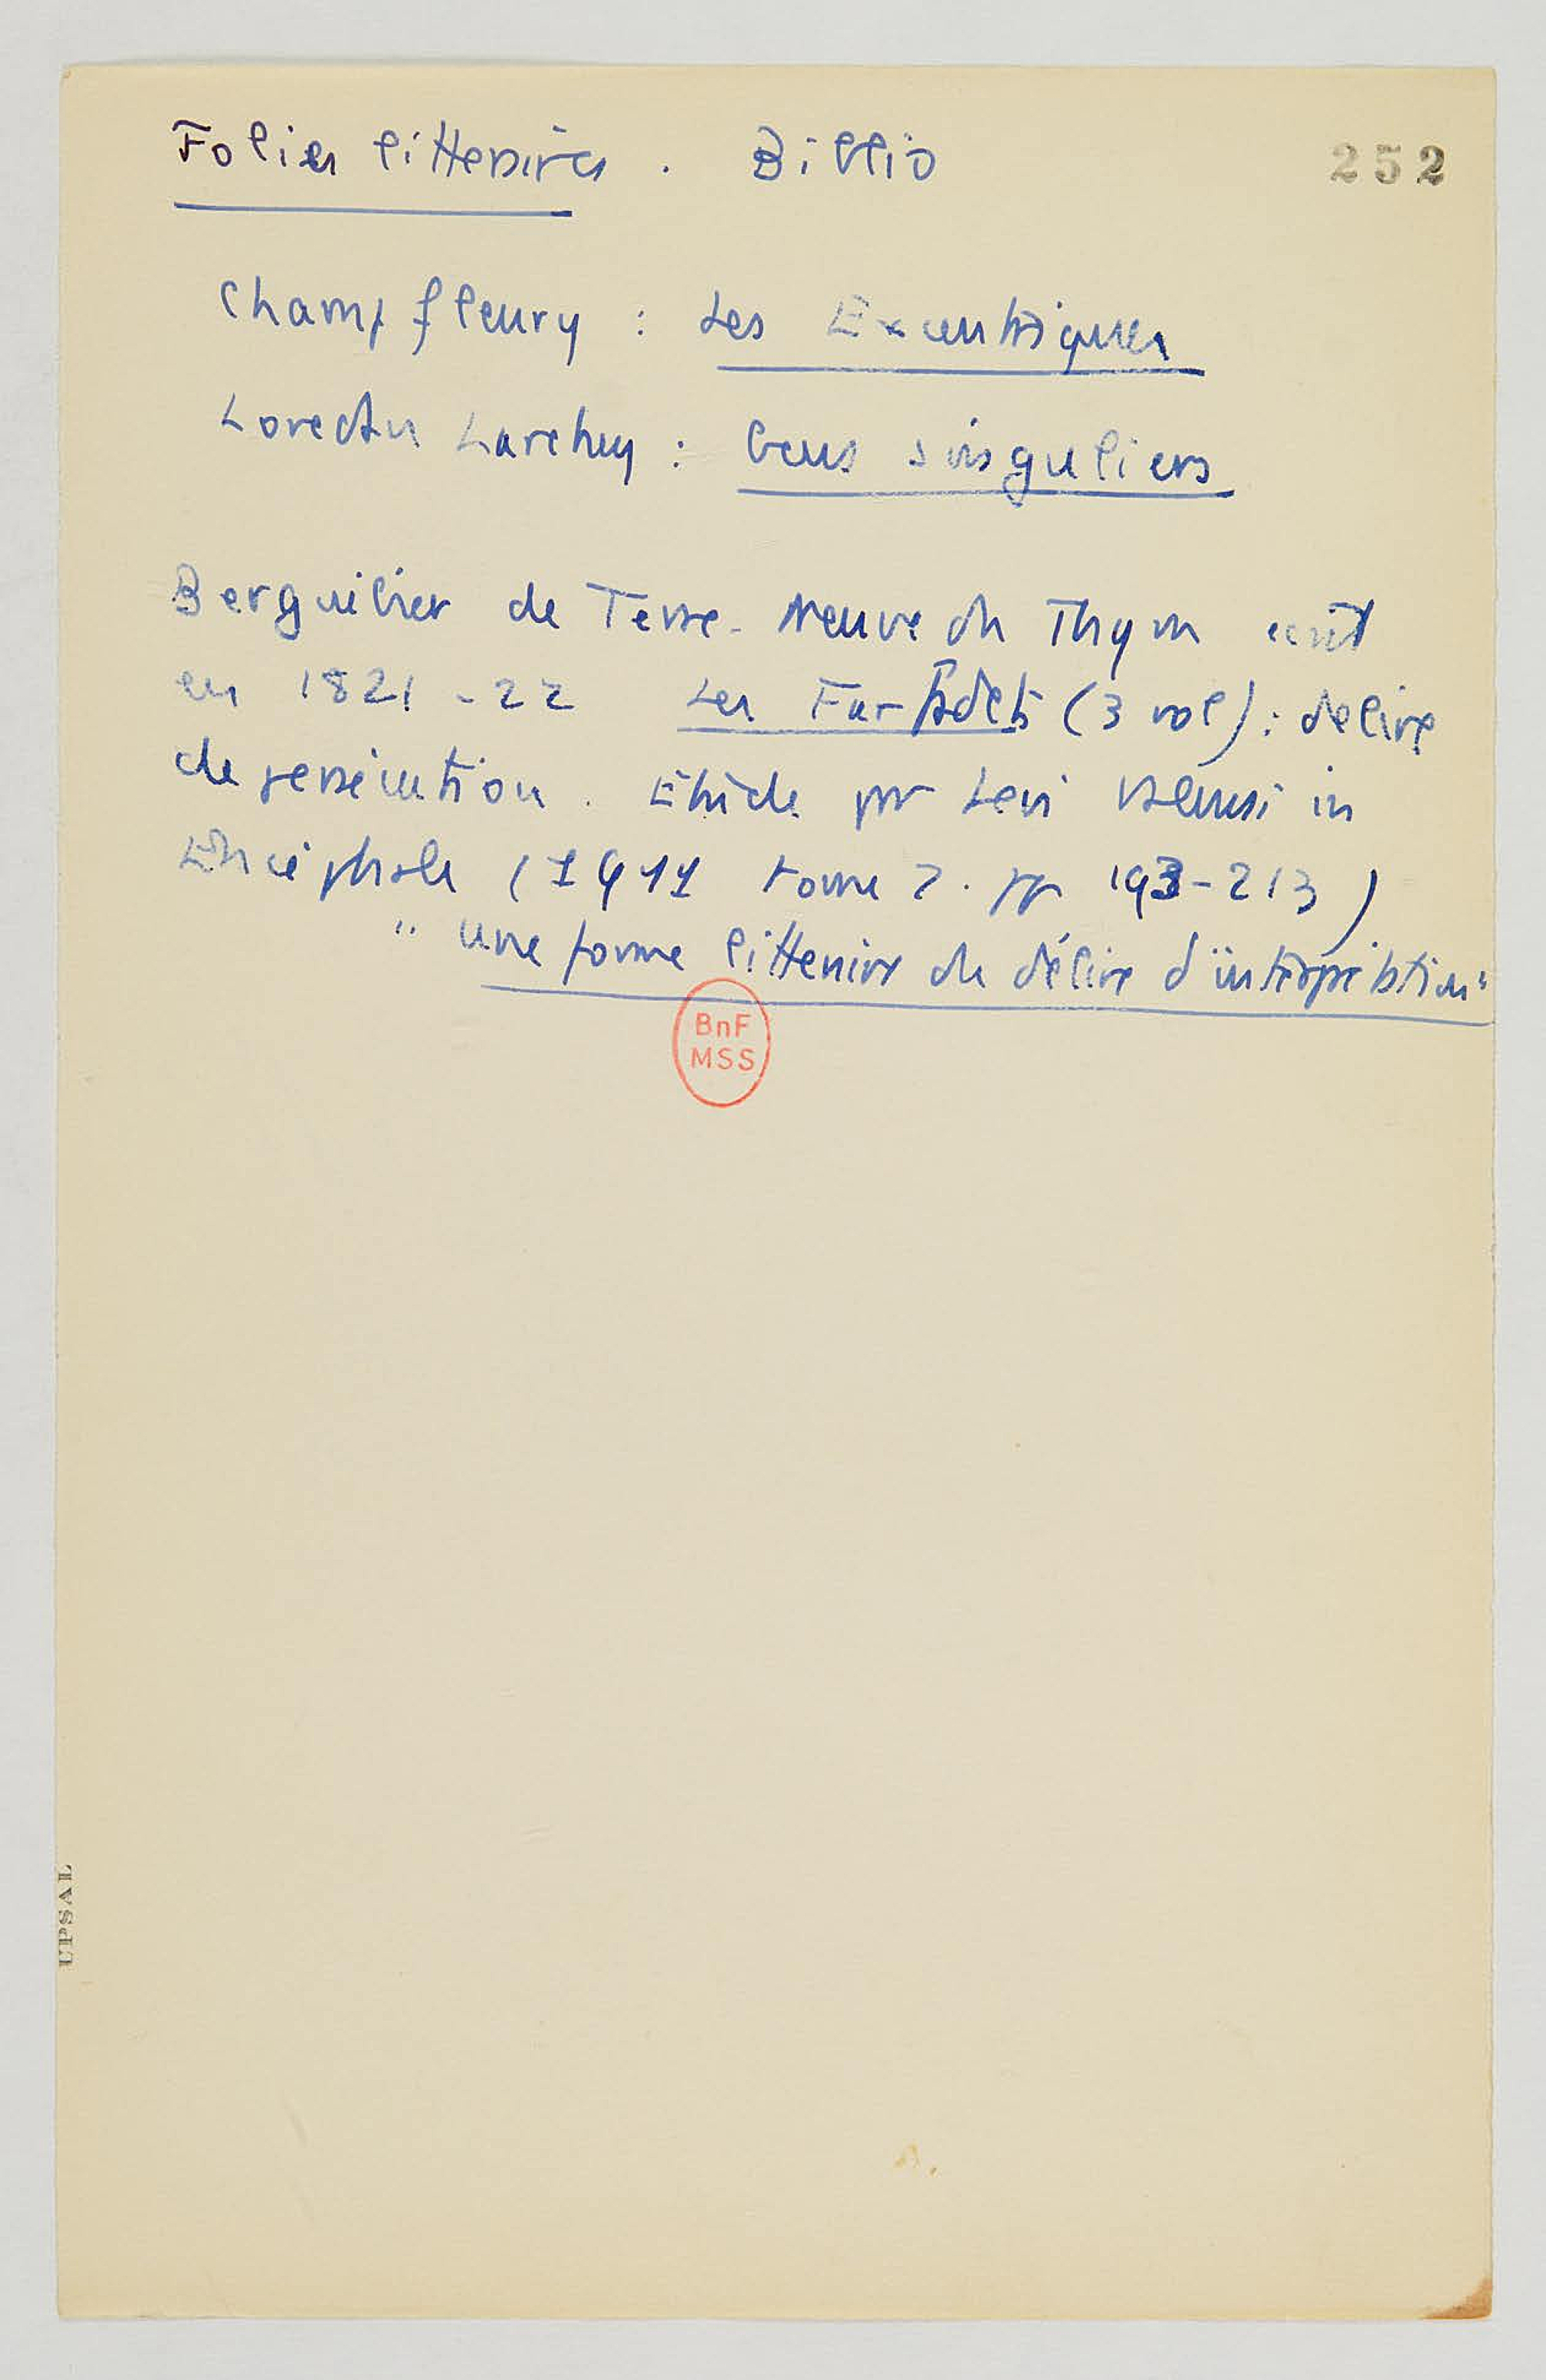 Folies littéraires. Biblio
252
Champfleury : Les Excentriques
Loredan Larchey : Gens singuliers
Berguilier de Terre-Neuve du Thym écrit
en 1821-22 Les Farfadets (3 vol) : délire
de persécution. Etude par Levi Valensi in
Encéphale (1911 tome 2. pp 193-213)
"Une forme littéraire du délire d'interprétation"
BnF
MSS
UPSAL